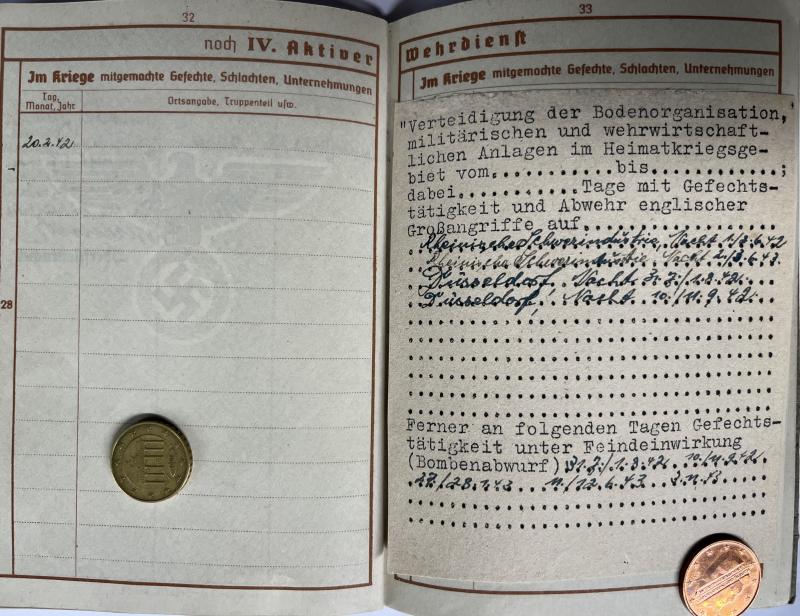 32
noch IV. Aktiver
Im Kriege mitgemachte Gefechte, Schlachten, Unternehmungen
Tag, Monat, Jahr
Ortsangabe, Truppenteil usw.
20.2.42
28
33
Wehrdienst
Im Kriege mitgemachte Gefechte, Schlachten, Unternehmungen
"Verteidigung der Bodenorganisation,
militärischen und wehrwirtschaft-
lichen Anlagen im Heimatkriegsge-
biet vom...........bis...........;
dabei...........Tage mit Gefechts-
tätigkeit und Abwehr englischer
Großangriffe auf
Rheinische Schwerindustrie, Nacht
Rheinische Schwerindustrie, Nacht
Düsseldorf, Nacht
Düsseldorf, Nacht 10./11.9.42.
Ferner an folgenden Tagen Gefechts-
tätigkeit unter Feindeinwirkung
(Bombenabwurf) 10./11.9.42.
27./28.1.43 11./12.6.43 3.11.43